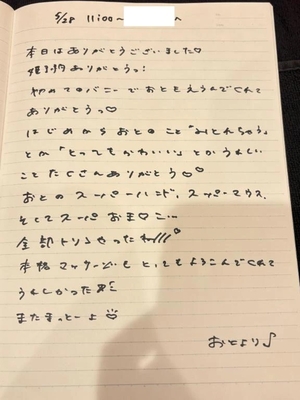 5/28 11:00〜 〜
本日はありがとうございました♡
ありがとうっ!
初めてのバニーでおとをえらんでくれて
ありがとうっ♡
はじめからおとのこと「みとれちゃう」
とか「とってもかわいい」とかうれしい
ことたくさんありがとう♡
おとのスーパーハンド、スーパーマウス、
そしてスーパーおま♡こ…
全部トリコやった///
本格マッサージもとってもよろこんでくれて
うれしかった
またまっとーよ
おとより♪